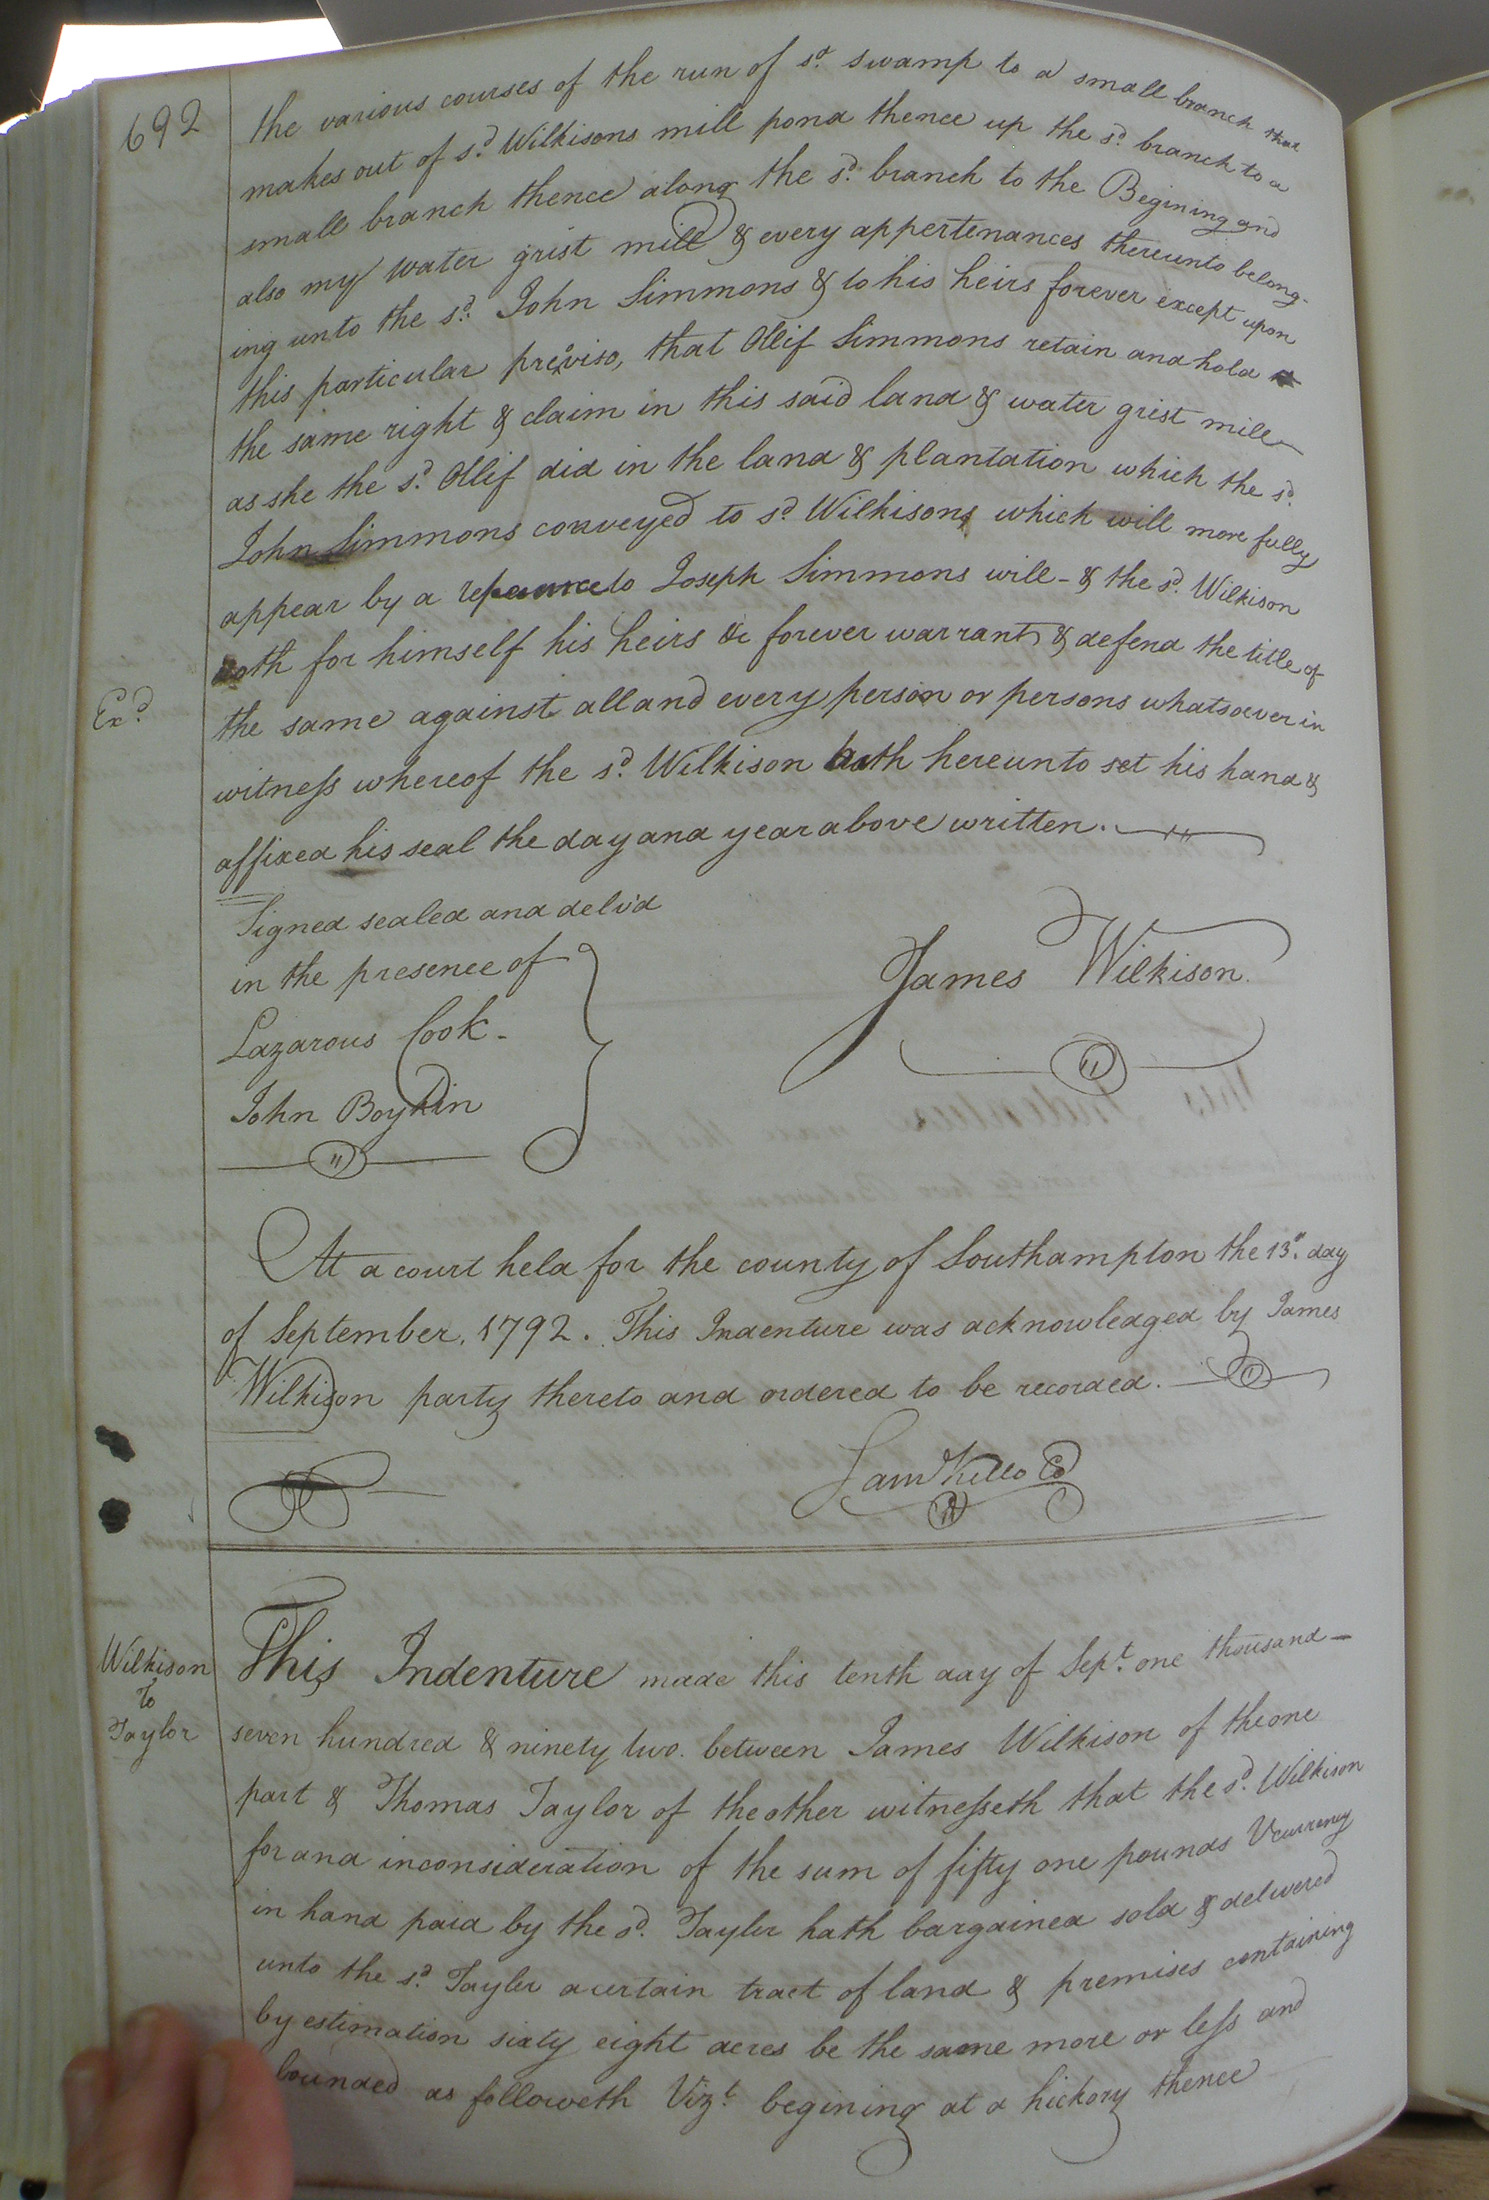 692
the various courses of the run of sd. swamp to a small branch that
makes out of sd. Wilkisons mill pond thence up the sd. branch to a
small branch thence along the sd. branch to the Begining and
also my water grist mill & every appertenances thereunto belong-
ing unto the sd. John Simmons & to his heirs forever except upon
this particular proviso, that Ollif Simmons retain and hold
the same right & claim in this said land & water grist mill
as she the sd. Ollif did in the land & plantation which the sd.
John Simmons conveyed to sd Wilkisons which will more fully
appear by a to Joseph Simmons will - & the sd. Wilkison
doth for himself his heirs &c forever warrant & defend the title of
Exd.
the same against all and every person or persons whatsoever in
witness whereof the sd. Wilkison hath hereunto set his hand &
affixed his seal the day and year above written.
Signed sealed and deliv'd
in the presence of
James Wilkison.
Lazarous Cook -
John Boykin
At a court held for the county of Southampton the 13th. day
of September, 1792. This Indenture was acknowledged by James
Wilkison party thereto and ordered to be recorded.
Saml Kello CC
Wilkison
To
Taylor
This Indenture made this tenth day of Sept. one thousand
seven hundred & ninety two. between James Wilkison of the one
part & Thomas Taylor of the other witnesseth that the sd. Wilkison
for and in consideration of the sum of fifty one pounds V currency
in hand paid by the sd. Tayler hath bargained sold & delivered
unto the sd. Tayler a certain tract of land & premises containing
by estimation sixty eight acres be the same more or less and
bounded as followeth Vizt. begining at a hickory thence